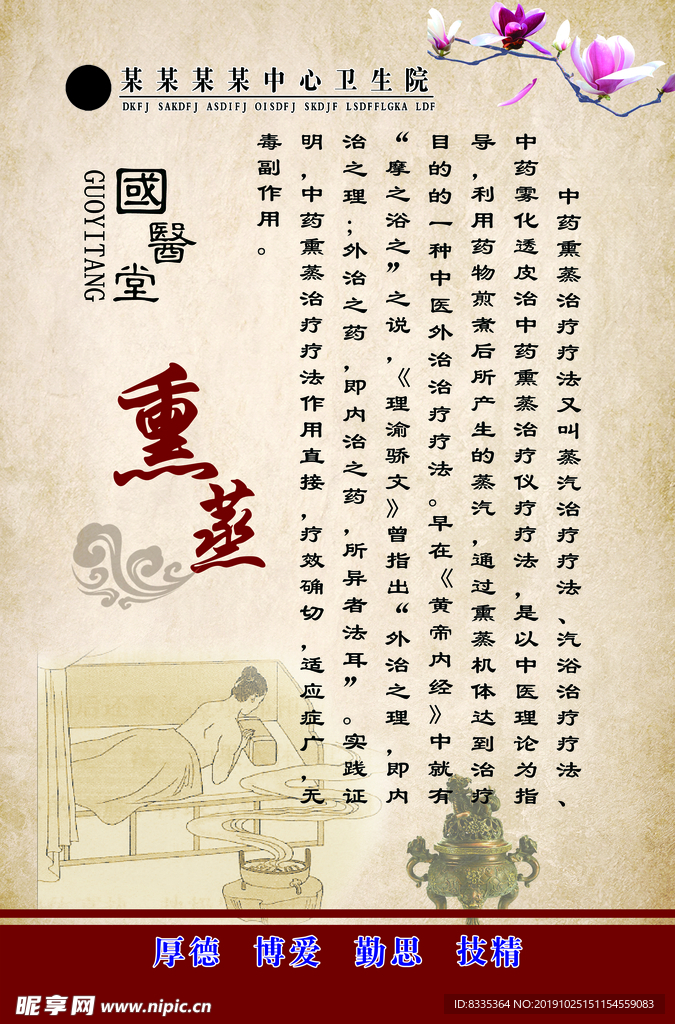 某某某某中心卫生院
DKFJ SAKDFJ ASDIFJ OISDFJ SKDJF LSDFFLGKA LDF
國醫堂
GUOYITANG
熏蒸
中药熏蒸治疗疗法又叫蒸汽治疗疗法、汽浴治疗疗法、
中药雾化透皮治中药熏蒸治疗仪疗疗法,是以中医理论为指
导,利用药物煎煮后所产生的蒸汽,通过熏蒸机体达到治疗
目的的一种中医外治治疗疗法。早在《黄帝内经》中就有
“摩之浴之”之说,《理渝骄文》曾指出“外治之理,即内
治之理;外治之药,即内治之药,所异者法耳”。实践证
明,中药熏蒸治疗疗法作用直接,疗效确切,适应症广,无
毒副作用。
厚德 博爱 勤思 技精
昵享网 www.nipic.cn
ID:8335364 NO:20191025151154559083